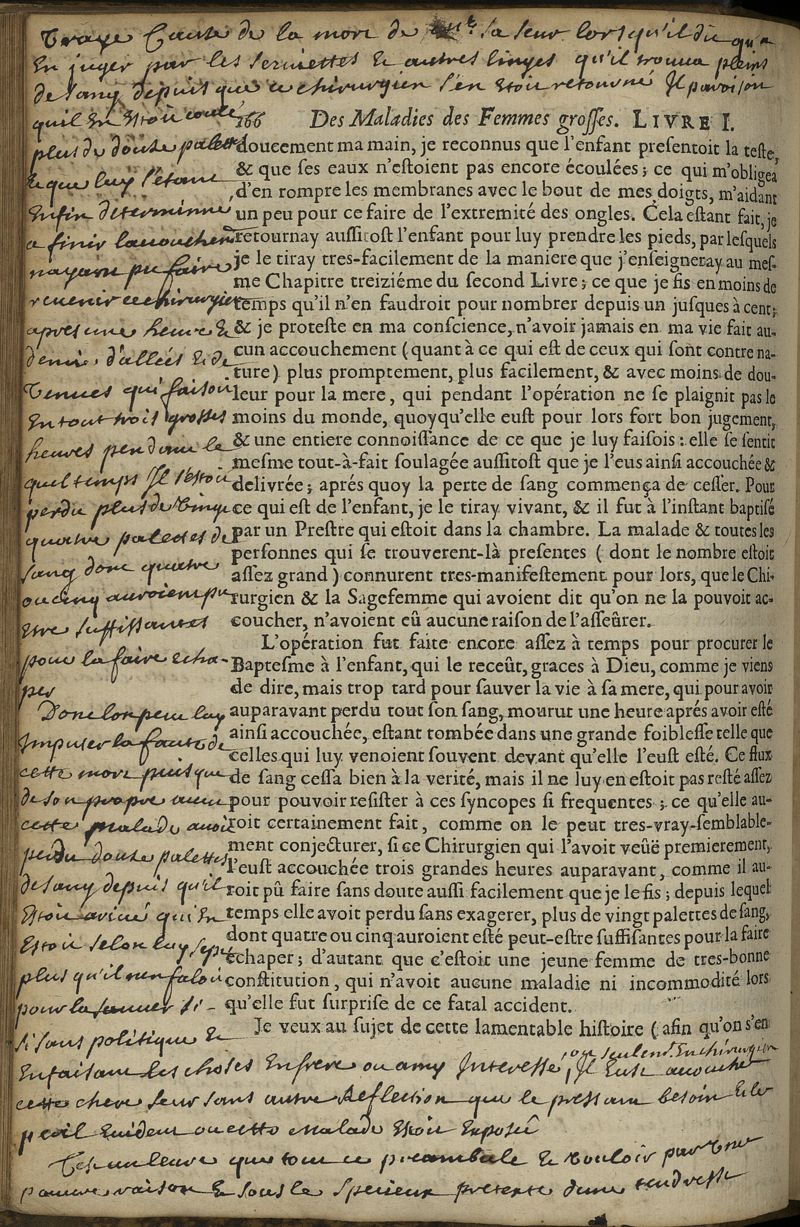 Traye Cause de la mort de sa seur lors qu'il dit qu'a
En juger par les seruiettes & autres linges qu'il trouua pleins
de sang depuis que ce chirurgien s'en Estoit retourné Il
quil En Estoit coulé
166 Des Maladies des Femmes groſſes. LIVRE I.
doucement ma main, je reconnus que l'enfant preſentoit la teſte,
& que ſes eaux n'eſtoient pas encore écoulées; ce qui m'obligea
d'en rompre les membranes avec le bout de mes doigts, m'aidant
un peu pour ce faire de l'extremité des ongles. Cela eſtant fait, je
retournay auſſitoſt l'enfant pour luy prendre les pieds, par leſquels
je le tiray tres-facilement de la maniere que j'enſeigneray au meſ-
me Chapitre treiziéme du ſecond Livre; ce que je fis en moins de
temps qu'il n'en faudroit pour nombrer depuis un juſques à cent;
& je proteſte en ma conſcience, n'avoir jamais en ma vie fait au-
cun accouchement (quant à ce qui eſt de ceux qui ſont contre na-
ture) plus promptement, plus facilement, & avec moins de dou-
leur pour la mere, qui pendant l'opération ne ſe plaignit pas le
moins du monde, quoyqu'elle euſt pour lors fort bon jugement,
& une entiere connoiſſance de ce que je luy faiſois: elle ſe ſentit
meſme tout-à-fait ſoulagée auſſitoſt que je l'eus ainſi accouchée &
delivrée; aprés quoy la perte de ſang commença de ceſſer. Pour
ce qui eſt de l'enfant, je le tiray vivant, & il fut à l'inſtant baptiſé
par un Preſtre qui eſtoit dans la chambre. La malade & toutes les
perſonnes qui ſe trouverent-là preſentes (dont le nombre eſtoit
aſſez grand) connurent tres-manifeſtement pour lors, que le Chi-
rurgien & la Sagefemme qui avoient dit qu'on ne la pouvoit ac-
coucher, n'avoient eû aucune raiſon de l'aſſeûrer.
L'opération fut faite encore aſſez à temps pour procurer le
Bapteſme à l'enfant, qui le receût, graces à Dieu, comme je viens
de dire, mais trop tard pour ſauver la vie à ſa mere, qui pour avoir
auparavant perdu tout ſon ſang, mourut une heure aprés avoir eſté
ainſi accouchée, eſtant tombée dans une grande foibleſſe telle que
celles qui luy venoient ſouvent devant qu'elle l'euſt eſté. Ce flux
de ſang ceſſa bien à la verité, mais il ne luy en eſtoit pas reſté aſſez
pour pouvoir reſiſter à ces ſyncopes ſi frequentes; ce qu'elle au-
roit certainement fait, comme on le peut tres-vray-ſemblable-
ment conjecturer, ſi ce Chirurgien qui l'avoit veûë premierement,
l'euſt accouchée trois grandes heures auparavant, comme il au-
roit pû faire ſans doute auſſi facilement que je le fis; depuis lequel
temps elle avoit perdu ſans exagerer, plus de vingt palettes de ſang,
dont quatre ou cinq auroient eſté peut-eſtre ſuffiſantes pour la faire
échaper; d'autant que c'eſtoit une jeune femme de tres-bonne
conſtitution, qui n'avoit aucune maladie ni incommodité lors
qu'elle fut ſurpriſe de ce fatal accident.
Je veux au ſujet de cette lamentable hiſtoire (afin qu'on s'en
plus de douze palettes
Enfin determinné
a finir lacouchement
nayant pu faire
reuenir ce chirurgien
apres une heure &
demie, d'allées & de
venues qui faisoit
En tout trois grosses
heures pendant le
quel temps Il s'estoit
perdu plus de vingt
quatre paletes de
sang dont quatre
ou cinq auroient pu
Etre suffisantes
pour la faire echa-
per
Donc lon peut luy
Imputer la faute de
cette mort puis que
de son propre aueu
cette malade auoit
perdu douze palettes
de sang depuis qu'il
Estoit ariué qui En
Estoit selon luy sept
plus qu'il n'en faloit
pour la sauuer Si-
Si sans politique &
En faisant les choses En frere ou amy Interessé, Il Eust accouché
cette chere seur sans autre Reflection que le pressant besoin & le
peril Euident ou cette malade Estoit Exposée
que tout ce preambule & vouloir par une
pauure raison & sous le specieux pretexte dune tendresse